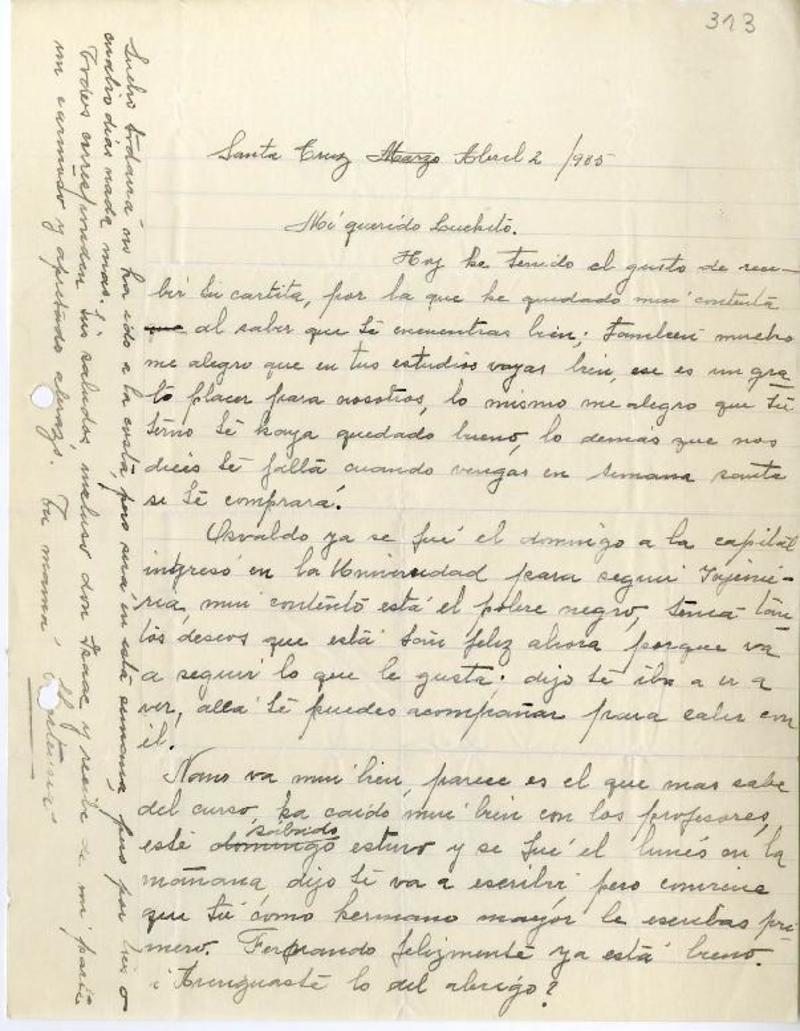 313
Santa Cruz Marzo Abril 2 /935
Mi querido Luchito.
Hoy he tenido el gusto de reci-
bir tu cartita, por la que he quedado mui contenta
que al saber que te encuentras bien; tambien mucho
me alegro que en tus estudios vayas bien, ese es un gra-
to placer para nosotros, lo mismo me alegro que tu
terno te haya quedado bueno, lo demás que nos
dices te falta cuando vengas en semana santa
se te comprará.
Osvaldo ya se fué el domingo a la capital
ingresó en la Universidad para seguir Injenie-
ria, mui contento está el pobre negro, tenia tan-
tos deseos que está tan feliz ahora porque va
a seguir lo que le gusta; dijo te iba a ir a
ver, allá te puedes acompañar para salir con
él.
Nano va mui bien, parece es el que mas sabe
del curso, ha caido mui bien con los profesores,
este domingo sábado estuvo y se fué el lunes en la
mañana, dijo te va a escribir, pero conviene
que tú como hermano mayor le escribas pri-
mero. Fernando felizmente ya está bueno.
¿Averiguaste lo del abrigo?
Lucho todavia no ha ido a la costa, pero irá en esta semana, pero por tres o
cuatro dias nada mas.
Todos corresponden tus saludos, incluso don Isaac y recibe de mi parte
un cariñoso y apretado abrazo. Tu mamá,